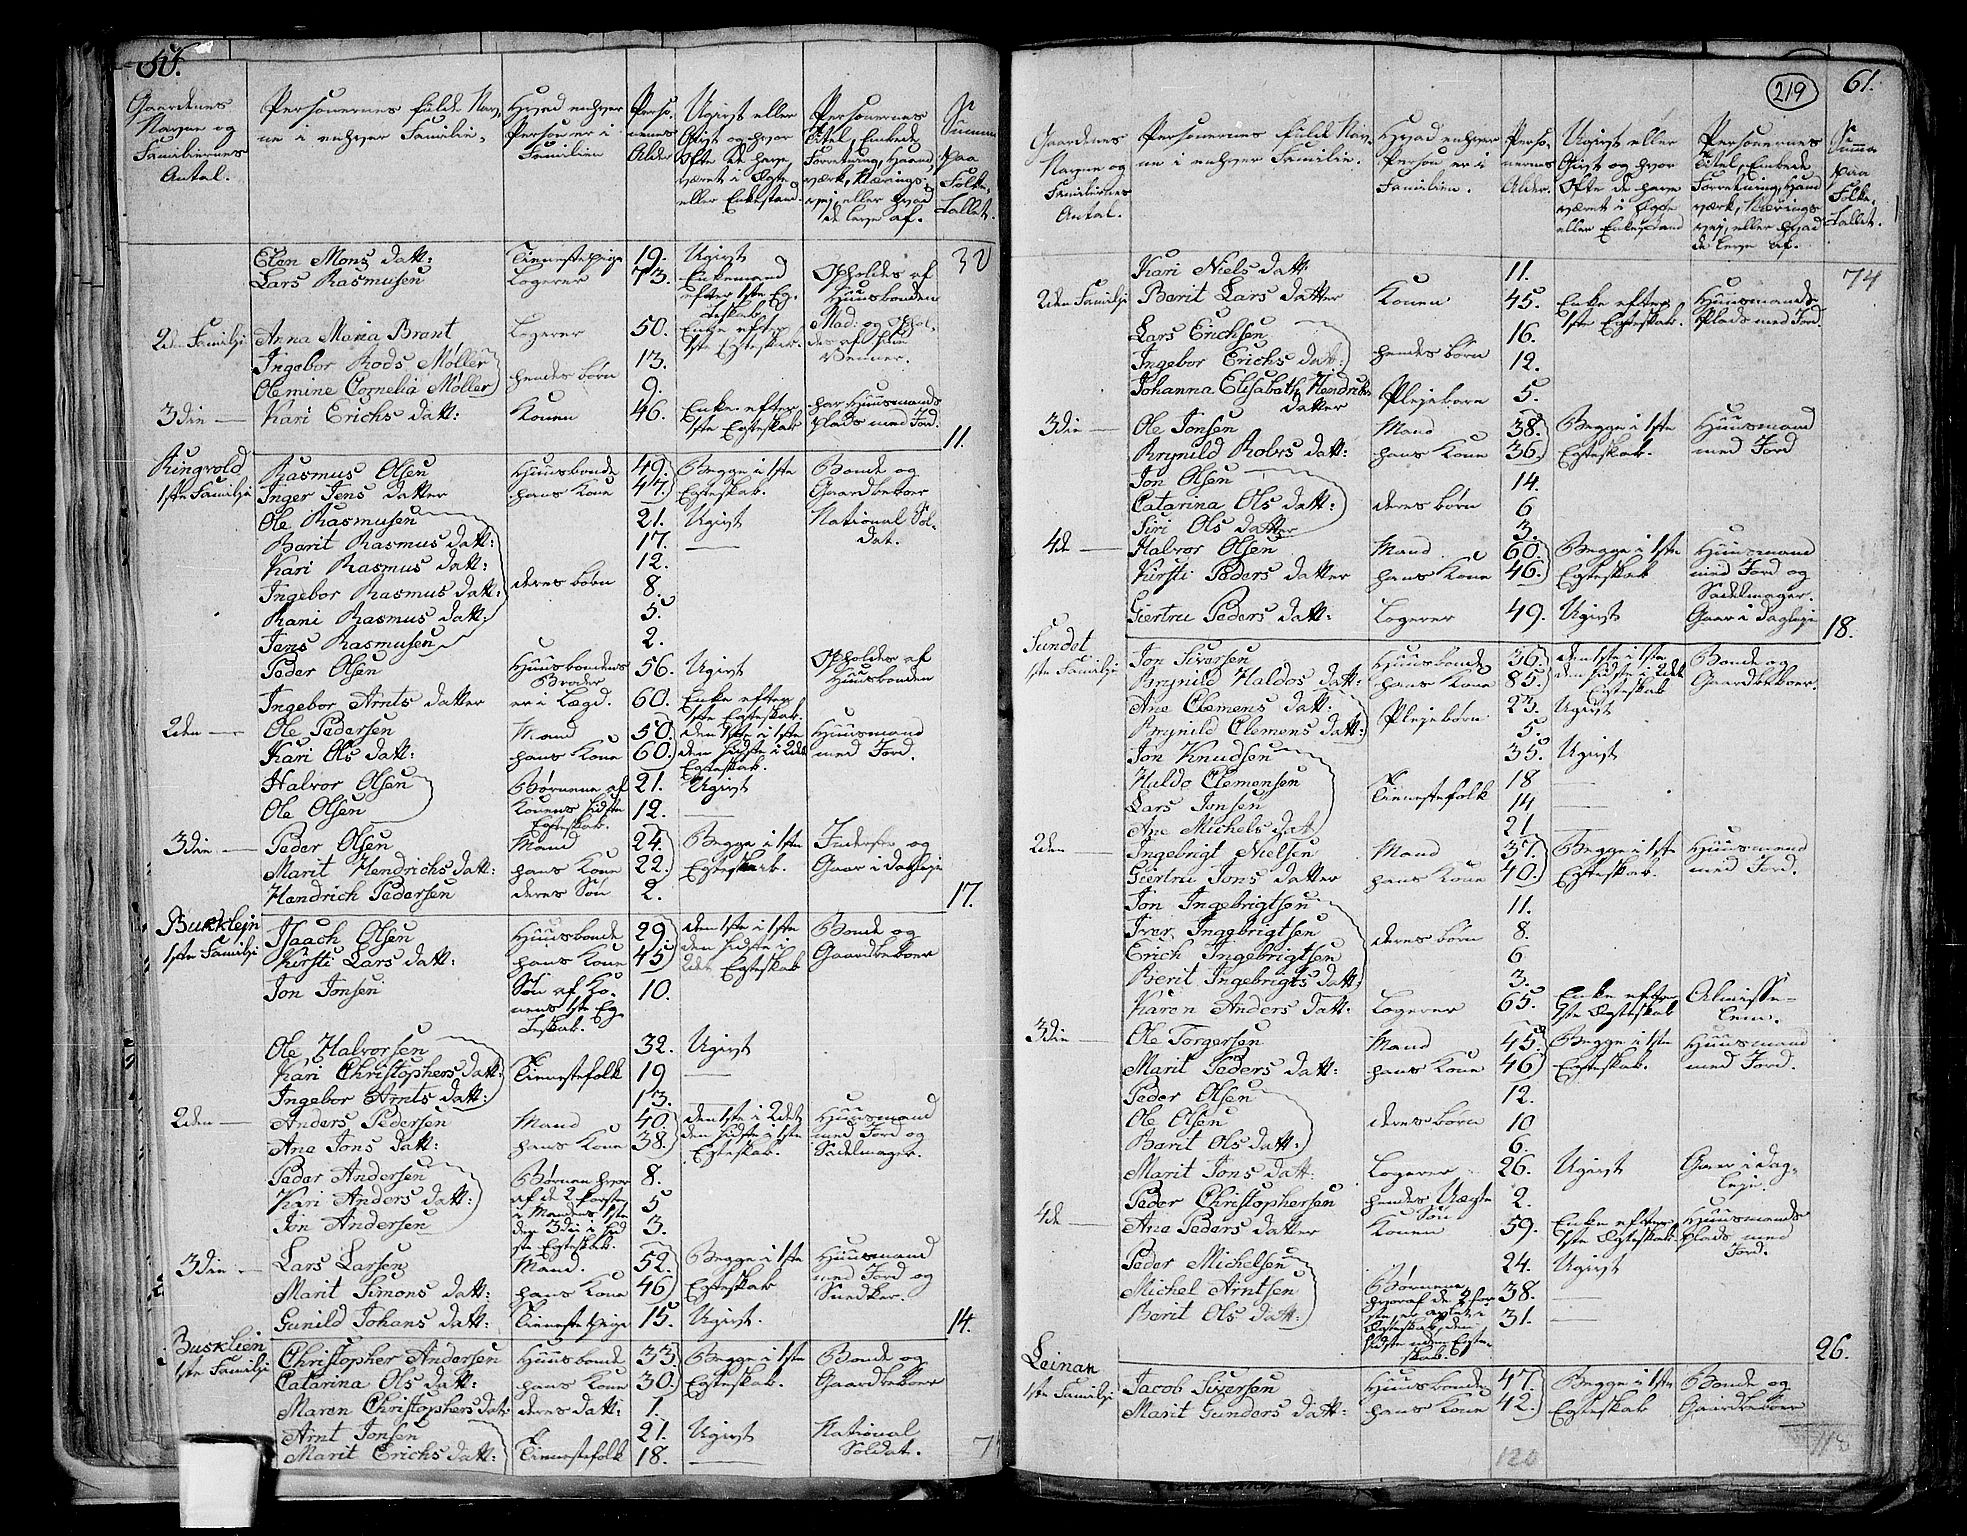 Gaardenes Navne og Familiernes Antal.
Personernes fulde Navne i enhver Familie.
Hvad enhver Person er i Familien
Personernes Alder
Ugivt eller Gift og hvor Ofte de have været i Ægte- eller Enkestand
Personernes Titel, Embede, Forretning, Haandværk, Næringsvej, eller hvad de leve af.
Summa paa Folke-Tallet.
Elen Mons datt: Tienestepige 19. Ugivt 30
Lars Rasmusen Logerer 73. Enkemand efter 1ste Egteskab Opholdes af Huusbonden
2den Familj Anna Maria Brant Logerer 50. Enke efter 1ste Egteskab. Mad: og Ophol- des af sine Venner.
Ingebor Rods Møller 13.
hendes børn
Olemine Cornelia Møller 9.
3die — Kari Erichs datt: Konen 46. Enke efter 1ste Egteskab har Huusmands plads med Jord. 11.
Ringvold
1ste Familj Rasmus Olsen Huusbonde 49. Begge i 1ste Bonde og
Inger Jens datter hans Kone 47. Egteskab. Gaardbeboer
Ole Rasmusen 21. Ugivt National Sol- dat.
Barit Rasmus datt: 17. —
Kari Rasmus datt: 12.
Ingebor Rasmus datt: deres børn 8.
Rani Rasmus datt: 5.
Jens Rasmusen 2.
Peder Olsen Huusbondens Broder 56. Ugivt Opholdes af Huusbonden
Ingebor Arnts datter er i Lægd. 60. Enke efter 1ste Egteskab.
2den — Ole Pedersen Mand 50. den 1ste i 1ste Huusmand
Kari Ols datt: hans Kone 60. den sidste i 2det Egteskab. med Jord.
Halvor Olsen Børnene af 21. Ugivt
Ole Olsen Konens sidste Egteskab. 12. —
3die — Peder Olsen Mand 24. Begge i 1ste Inderste og
Marit Hendrichs datt: hans Kone 22. Egteskab. Gaar i Dagleje
Hendrich Pedersen deres Søn 2. 17.
Busklejn
1ste Familj Isaach Olsen Huusbonde 29 den 1ste i 1ste Bonde og
Kirsti Lars datt: hans Kone 45 den sidste i 2det Egteskab Gaardbeboer
Jon Jonsen Søn af Ko- nens 1ste Eg- teskab. 10.
Ole Halvorsen 32. Ugivt
Kari Christophers datt: Tienestefolk 19 —
Ingebor Arnts datt: 13.
2den — Anders Pedersen Mand 40. den 1ste i 2det Huusmand
Ane Jons datt: hans Kone 38. den sidste i 1ste Egteskab. med Jord og Sadelmager.
Peder Andersen Børnene hvor 8.
Kari Anders datt: af de 2 første i Mandens 1ste 5
Jon Andersen den 3die i sid- ste Egteskab. 3.
3die — Lars Larsen Mand. 52. Begge i 1ste Huusmand
Marit Simons datt: hans Kone 46 Egteskab med Jord og Snedker.
Gunild Johans datt: Tieneste pige 15. Ugivt. 14.
Busklien
1ste Familj Christopher Andersen Huusbonde 33. Begge i 1ste Bonde og
Catarina Ols datt: hans Kone 30. Egteskab. Gaardbeboer
Maren Christophers datt: deres datt: 1.
Arnt Jonsen 21. Ugivt National Soldat.
Marit Erichs datt: Tienestefolk 18. —
219
61.
Gaardenes Navne og Familiernes Antal.
Personernes fulde Navne i enhver Familie.
Hvad enhver Person er i Familien.
Personernes Alder.
Ugivt eller Gift og hvor Ofte de have været i Ægte eller Enkestand
Personernes Titel, Embede Forretning, Haandværk, Næringsvej, eller hvad de leve af.
Summa paa Folke-Tallet.
Kari Niels datt: 11. 74
2den Familj Barit Lars datter Konen 45. Enke efter 1ste Egteskab. Huusmands Plads med Jord.
Lars Erichsen 16.
Ingebor Erichs datt: hendes børn 12.
Johanna Elisabeth Hendrichs datter Plejebarn 5.
3die — Ole Jonsen Mand 38. Begge i 1ste Huusmand
Brynild Robrs datt: hans Kone 36. Egteskab. med Jord
Jon Olsen 14.
Catarina Ols datt: deres børn 6
Siri Ols datter 3.
4de — Halvor Olsen Mand. 60. Begge i 1ste Huusmand
Kirsti Peders datter hans Kone 46. Egteskab med Jord og Sadelmager.
Giertru Peders datt: Logerer 49. Ugivt Gaar i Dagleje 18.
Sundet
1ste Familj Jon Siversen Huusbonde 36. den 1ste i 1ste Bonde og
Brynild Haldos datt: hans Kone 85. den sidste i 2det Egteskab Gaardbeboer.
Ane Clemens datt: 23. Ugivt
Plejebørn
Brynild Clemens datt: 5.
Jon Knudsen 35. Ugivt
Huldo Clemensen 18 —
Tienestefolk
Lars Jonsen 14
Ane Michels dat 21 —
2den Ingebrigt Nielsen Mand 37. Begge i 1ste Huusmand
Giertru Jons datter hans Kone 40. Egteskab. med Jord.
Jon Ingebrigtsen 11.
Iver Ingebrigtsen 8.
deres børn
Erich Ingebrigtsen 6
Berit Ingebrigts datt: 3.
Karen Anders datt: Logerer 65. Enke efter 1ste Ægteskab Almisse- Lem.
3die — Ole Torgersen Mand 45. Begge i 1ste Huusmand
Marit Peders datt: hans Kone 46 Egteskab. med Jord.
Peder Olsen 12.
Ole Olsen deres børn 10
Barit Ols datt: 6.
Marit Jons datt: Logerer 26. Ugivt Gaar i Dag- leje.
Peder Christophersen hendes Uægte Søn 2.
4de — Ane Peders datter Konen 59. Enke efter 1ste Ægteskab. Huusmands Plads med Jord.
Peder Michelsen 24. Ugivt
Michel Arntsen Børnene hvoraf de 2 før- ste er avlede i 38. —
Barit Ols datt: Ægteskab, den sidste uden Egte- skab. 31. —
26.
Leinan
1ste Familj Jacob Siversen Huusbonde 47. Begge i 1ste Bonde og
Marit Gunders datt: hans Kone 42. Egteskab Gaardbeboer
120
118